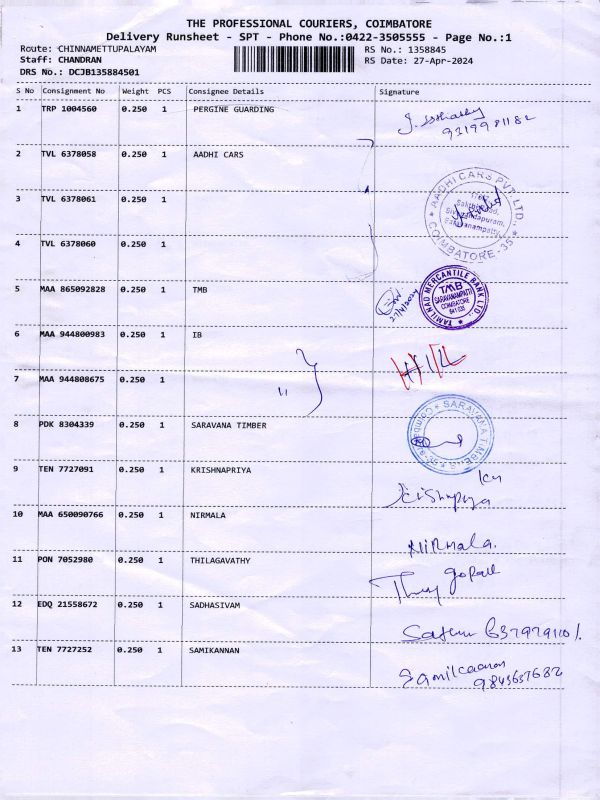 THE PROFESSIONAL COURIERS, COIMBATORE
Delivery Runsheet - SPT - Phone No.:0422-3505555 - Page No.:1
Route: CHINNAMETTUPALAYAM RS No.: 1358845
Staff: CHANDRAN RS Date: 27-Apr-2024
DRS No.: DCJB135884501
S No Consignment No Weight PCS Consignee Details Signature
1 TRP 1004560 0.250 1 PERGINE GUARDING
2 TVL 6378058 0.250 1 AADHI CARS
3 TVL 6378061 0.250 1
AADHI CARS PVT. LTD.,
COIMBATORE-35
4 TVL 6378060 0.250 1
5 MAA 865092828 0.250 1 TMB
27/4/2024
TAMILNAD MERCANTILE BANK LTD.,
TMB
SARAVANAMPATTI
COIMBATORE
641 035
6 MAA 944800983 0.250 1 IB
7 MAA 944808675 0.250 1 "
8 PDK 8304339 0.250 1 SARAVANA TIMBER
SARAVANA TIMBERS
9 TEN 7727091 0.250 1 KRISHNAPRIYA
Krishnapriya
10 MAA 650090766 0.250 1 NIRMALA
NIRMala.
11 PON 7052980 0.250 1 THILAGAVATHY
gopal
12 EDQ 21558672 0.250 1 SADHASIVAM
13 TEN 7727252 0.250 1 SAMIKANNAN
9843637682